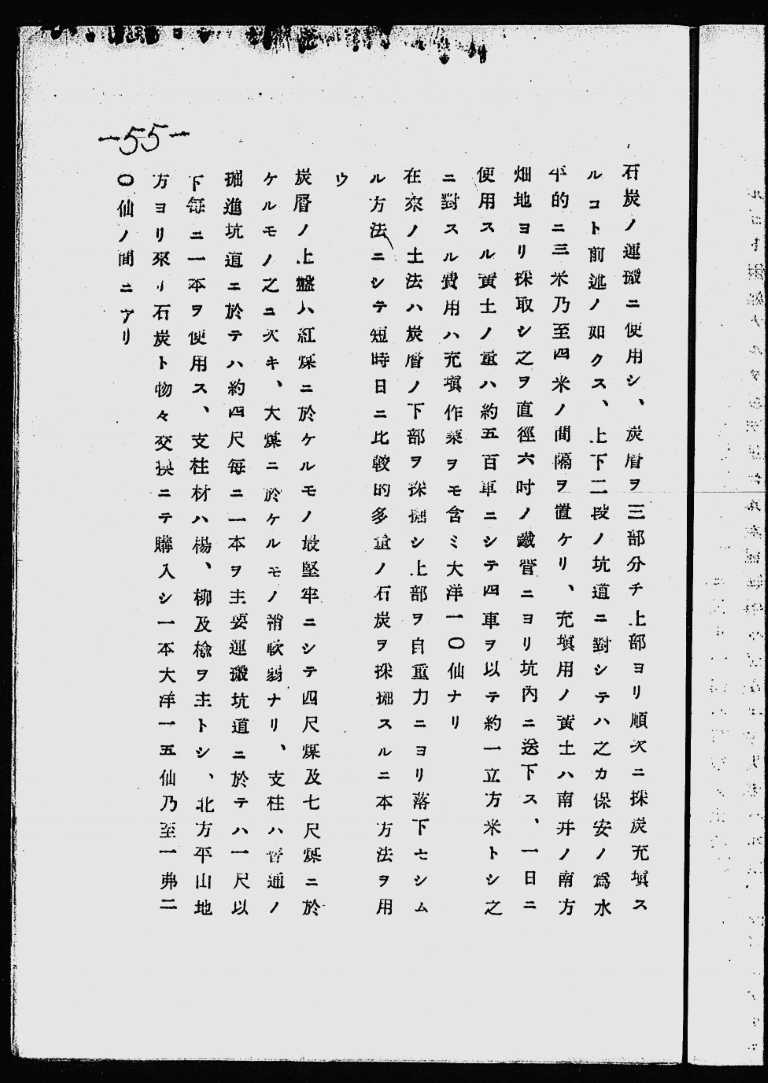 -55-
石炭ノ運搬ニ使用シ、炭層ヲ三部分チ上部ヨリ順次ニ採炭充塡ス
ルコト前述ノ如クス、上下二段ノ坑道ニ對シテハ之カ保安ノ爲水
平的ニ三米乃至四米ノ間隔ヲ置ケリ、充塡用ノ黃土ハ南井ノ南方
畑地ヨリ採取シ之ヲ直徑六吋ノ鐵管ニヨリ坑內ニ送下ス、一日ニ
使用スル黃土ノ量ハ約五百車ニシテ四車ヲ以テ約一立方米トシ之
ニ對スル費用ハ充塡作業ヲモ含ミ大洋一〇仙ナリ
在來ノ土法ハ炭層ノ下部ヲ採掘シ上部ヲ自重力ニヨリ落下セシム
ル方法ニシテ短時日ニ比較的多量ノ石炭ヲ採掘スルニ本方法ヲ用
ウ
炭層ノ上盤ハ紅煤ニ於ケルモノ最堅牢ニシテ四尺煤及七尺煤ニ於
ケルモノ之ニ次キ、大煤ニ於ケルモノ稍軟弱ナリ、支柱ハ普通ノ
掘進坑道ニ於テハ約四尺每ニ一本ヲ主要運搬坑道ニ於テハ一尺以
下每ニ一本ヲ使用ス、支柱材ハ楊、柳及楡ヲ主トシ、北方平山地
方ヨリ來リ石炭ト物々交換ニテ購入シ一本大洋一五仙乃至一弗二
〇仙ノ間ニアリ